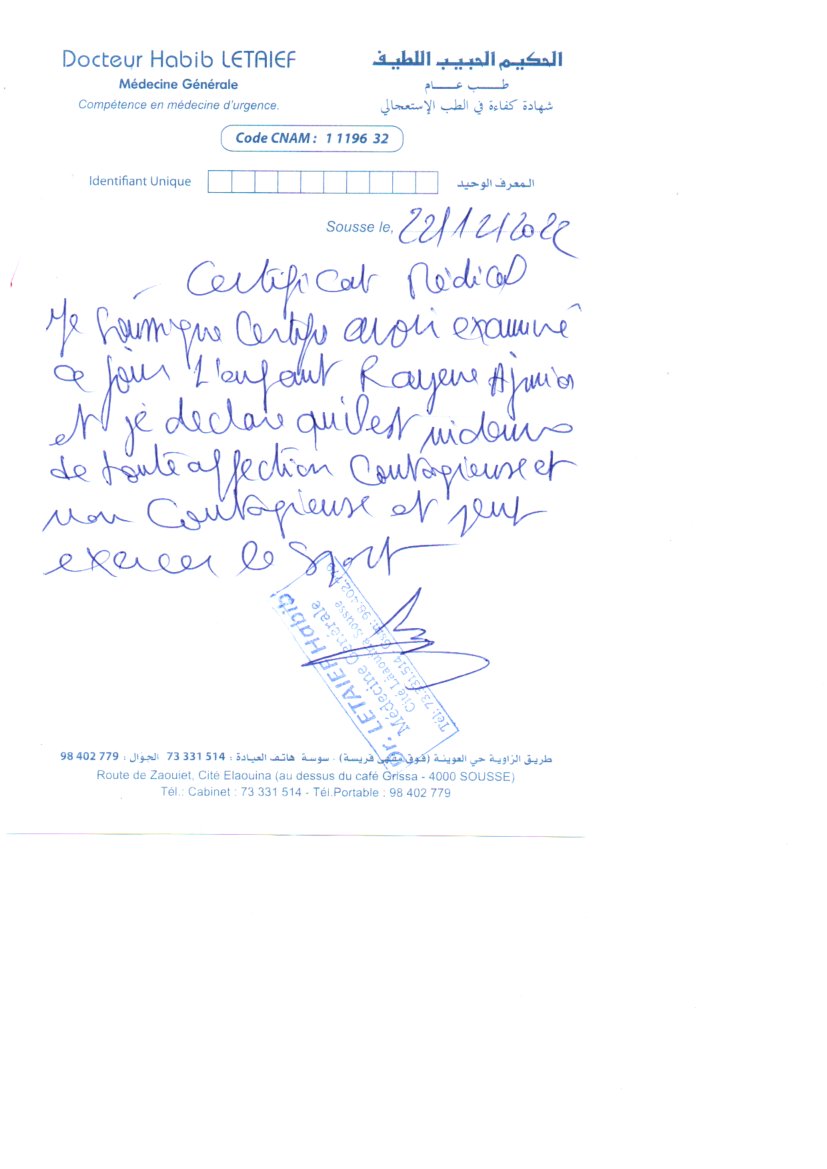 Docteur Habib LETAIEF
الحكيم الحبيب اللطيف
Médecine Générale
طب عام
Compétence en médecine d'urgence.
شهادة كفاءة في الطب الإستعجالي
Code CNAM : 1 1196 32
Identifiant Unique
المعرف الوحيد
Sousse le, 22/12/2022
Certificat Médical
Je soussigné Certifie avoir examiné
ce jour L'enfant Rayene
et je declare qu'il est indemne
de toute affection Contagieuse et
non Contagieuse et peut
exercer le Sport
Dr. LETAIEF Habib
Médecine Générale
Cité Laaouina Sousse
Tél: 73.331.514 98.402.779
طريق الزاوية حي العوينة (فوق مقهى قريسة) - سوسة هاتف العيادة : 514 331 73 الجوال : 779 402 98
Route de Zaouiet, Cité Elaouina (au dessus du café Grissa - 4000 SOUSSE)
Tél.: Cabinet : 73 331 514 - Tél.Portable : 98 402 779